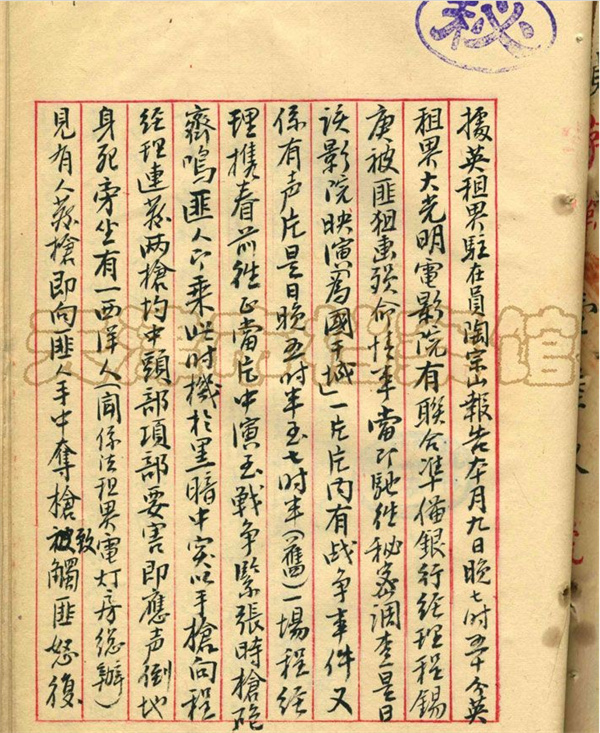 秘
據英租界駐在員陶宗山報告本月九日晚七时五十分英
租界大光明電影院有聯合準備銀行經理程錫
庚被匪狙击殒命情事當即馳往秘密調查是日
该影院映演「為國干城」一片片内有战争事件又
係有声片是日晚五时半至七时半(舊)一場程經
理携眷前往正當片中演至戰争緊張時槍砲
齊鳴匪人乃乘此时機於黑暗中突以手槍向程
經理連蒸两槍均中頭部項部要害即應声倒地
身死旁坐有一西洋人(闻係法租界電灯房总辦)
見有人蒸槍即向匪人手中奪槍致被觸匪怒復
天津市档案馆